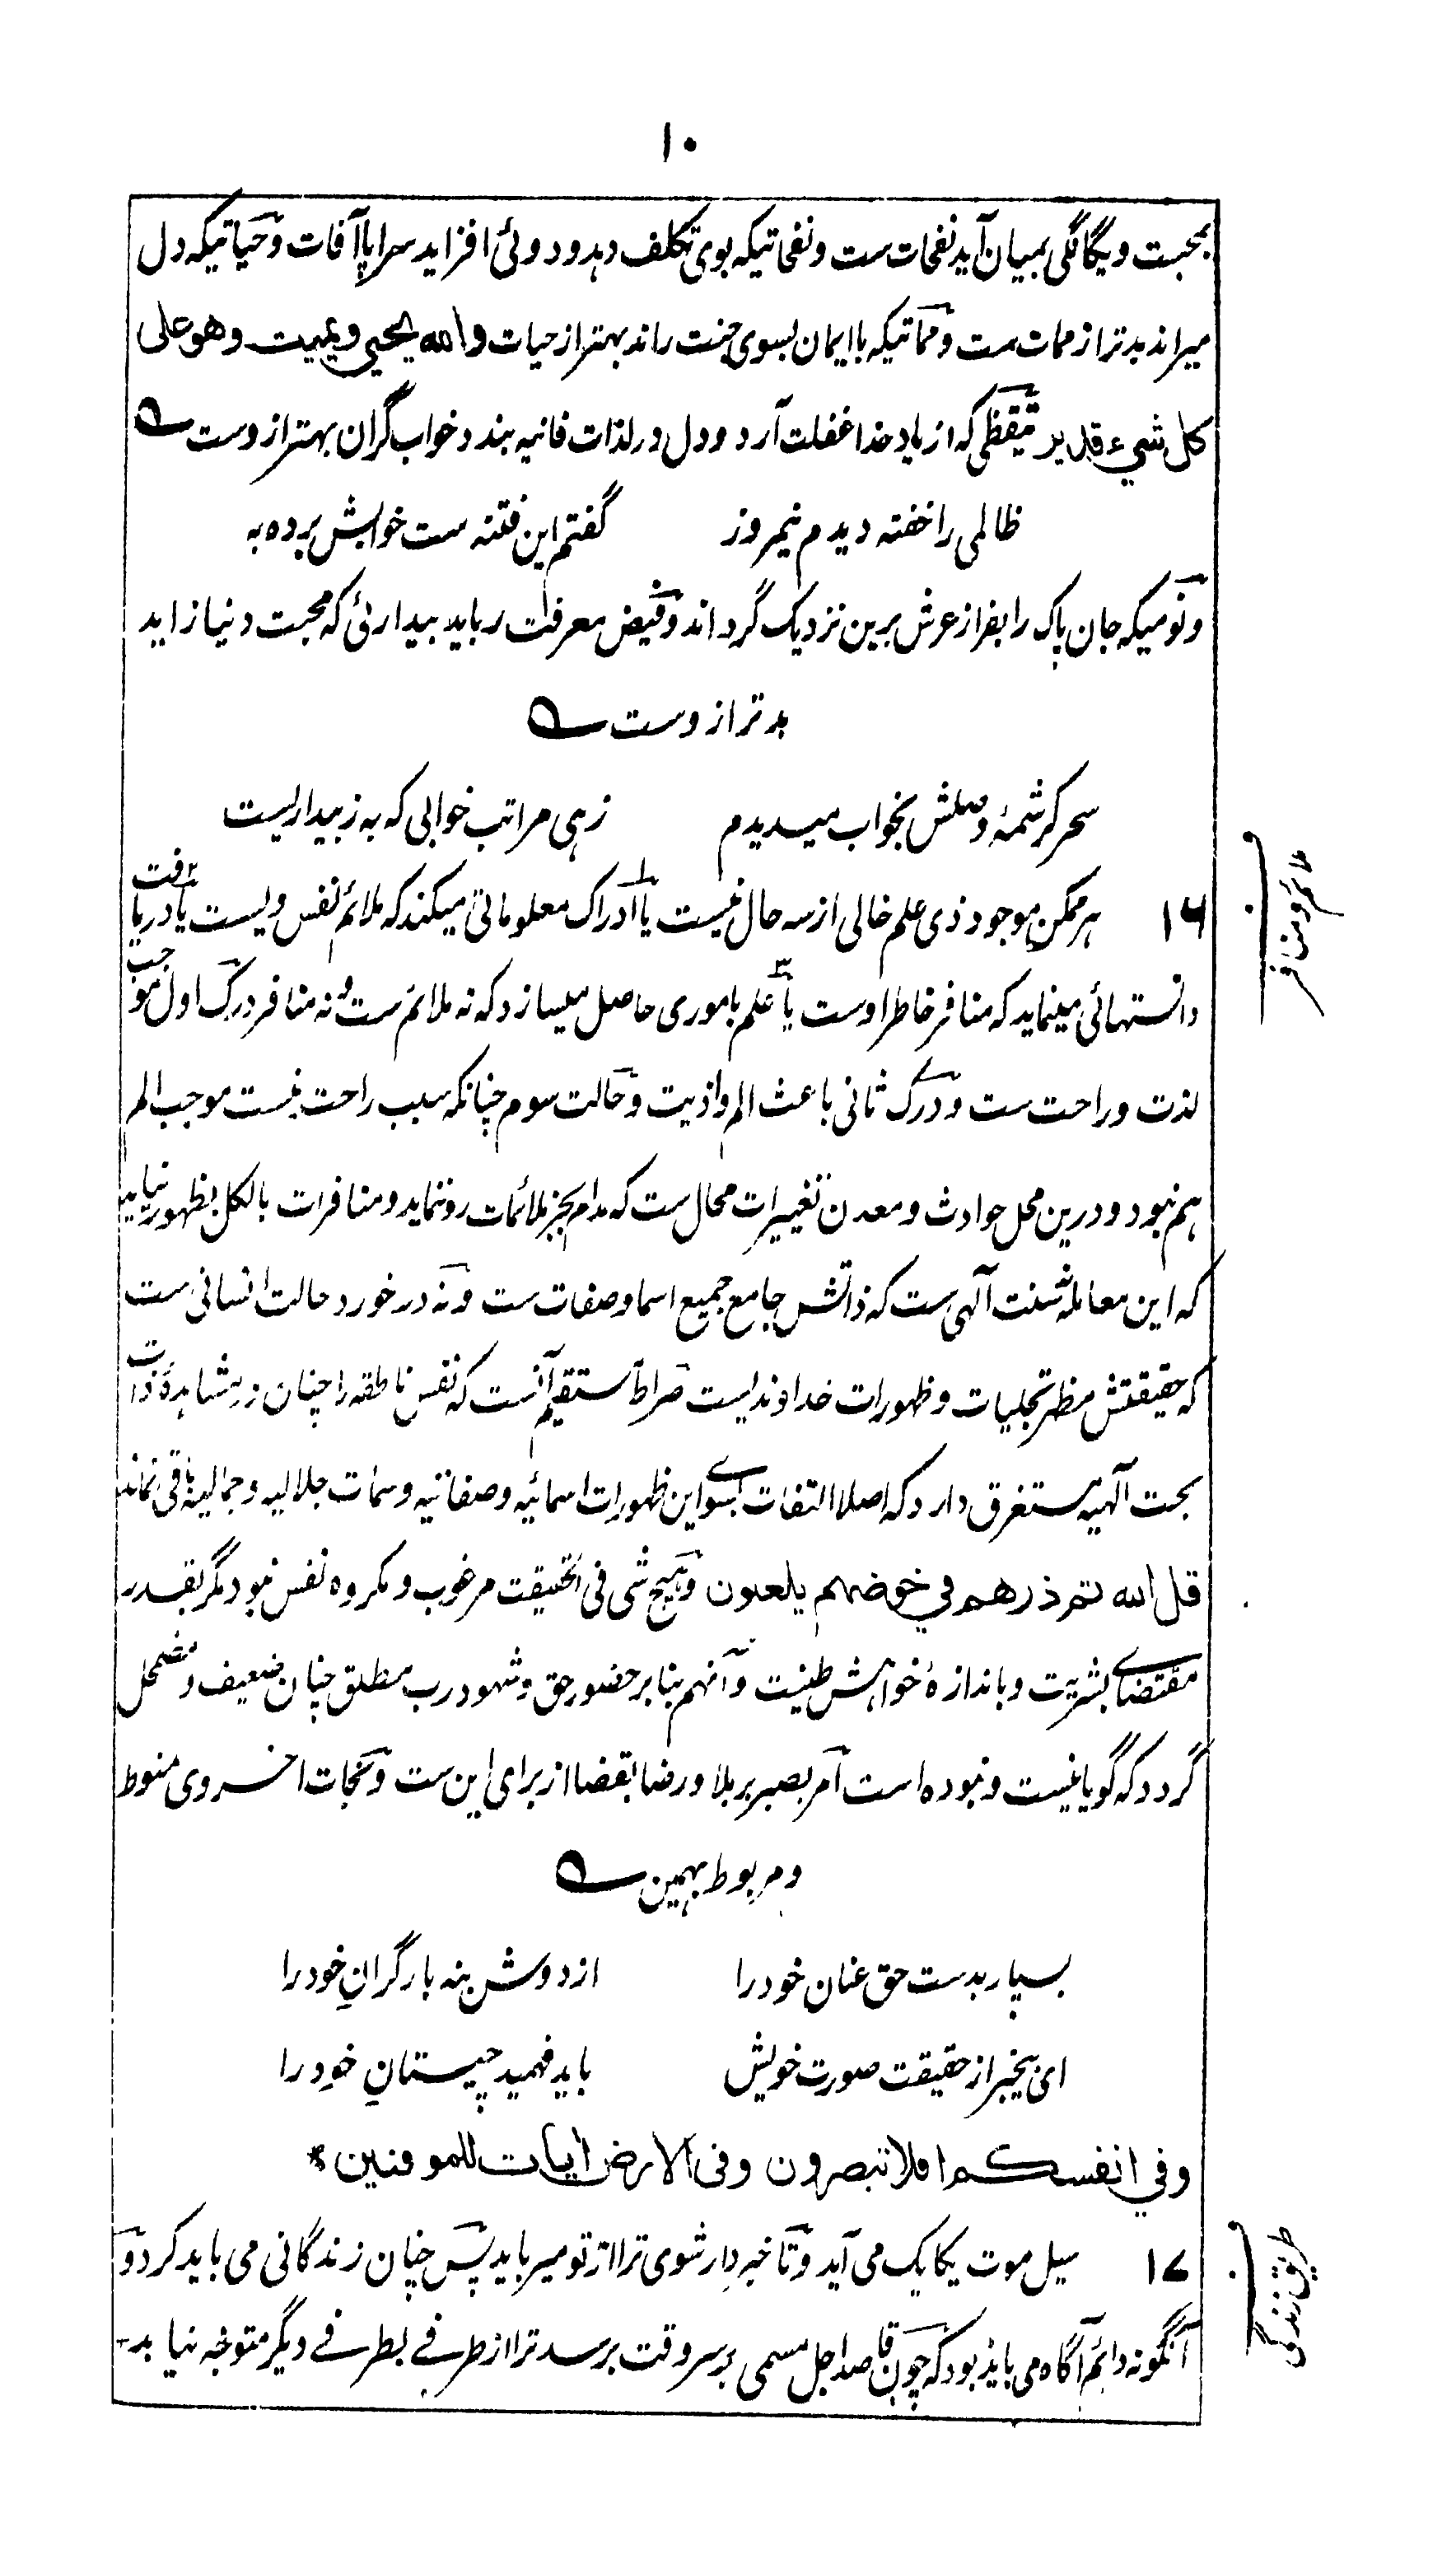 ۱۰
بمحبت و یگانگی بمیان آید نفحات ست و نفحاتیکه بوی تکلف دهد و دوئی افزاید سراپا آفات و حیاتیکه دل
میراند بدتر از ممات ست و مماتیکه با ایمان بسوی جنت راند بهتر از حیات والله یحیی و یمیت وهو علی
کل شیء قدیر تیقظی که از یاد خدا غفلت آرد و دل در لذات فانیه بندد خواب گران بهتر ازوست
ظالمی را خفته دیدم نیمروز گفتم این فتنه ست خوابش برده به
و نومیکه جان پاک را بفراز عرش برین نزدیک گرداند و فیض معرفت رباید بیدارئی که محبت دنیا زاید
بدتر ازوست
سحر کرشمهٔ وصلش بخواب میدیدم زهی مراتب خوابی که به ز بیداریست
۱۶ هر ممکن موجود ذی علم خالی از سه حال نیست یا ادراک معلوماتی میکند که ملائم نفس ویست یا دریافت
دانستهائی مینماید که منافر خاطر اوست یا علم باموری حاصل میسازد که نه ملائم ست و نه منافر درک اول موجب
لذت و راحت ست و درک ثانی باعث الم و اذیت و حالت سوم چنانکه سبب راحت نیست موجب الم
هم نبود و درین محل حوادث و معدن تغییرات محال ست که مدام بجز ملائمات رو ننماید و منافرات بالکل بظهور نیاید
که این معامله سنت آلهی ست که ذاتش جامع جمیع اسما و صفات ست و نه در خورد حالت انسانی ست
که حقیقتش مظهر تجلیات و ظهورات خداوندیست صراط مستقیم آنست که نفس ناطقه را چنان در مشاهدهٔ ذات
بحت آلهیه مستغرق دارد که اصلا التفات بسوے این ظهورات اسمائیه و صفاتیه و سمات جلالیه و جمالیه باقی نماند
قل الله ثم ذرهم في خوضهم یلعبون و هیچ شی فی الحقیقت مرغوب و مکروه نفس نبود مگر بقدر
مقتضاے بشریت و باندازهٔ خواهش طینت و آنهم بنابر حضور حق و شهود رب مطلق چنان ضعیف و مضمحل
گردد که گویا نیست و نبوده است امر بصبر بر بلا و رضا بقضا از برای این ست و نجات اخروی منوط
و مربوط بهمین
بسپار بدست حق عنان خود را از دوش بنه بار گرانِ خود را
ای بیخبر از حقیقت صورت خویش باید فهمید چیستانِ خود را
وفي انفسکم افلا تبصرون وفی الارض ایات للموقنین *
۱۷ سیل موت یکایک می آید و تا خبردار شوی ترا از تو میرباید پس چنان زندگانی می باید کرد و
آنگونه دائم آگاه می باید بود که چون قاصد اجل مسمی بر سر وقت برسد ترا از طرفے بطرفے دیگر متوجه نیابد
ملائم و منافر
طریق زندگی